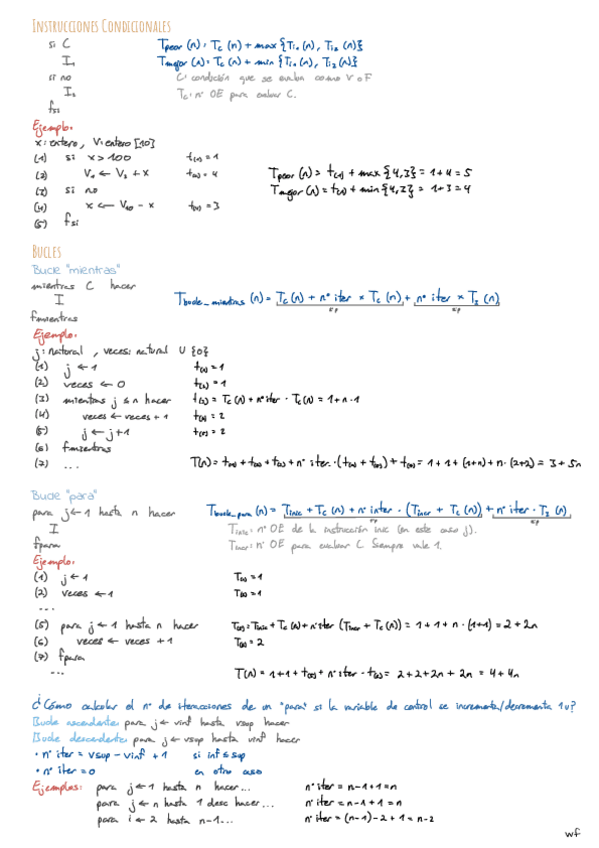 INSTRUCCIONES CONDICIONALES
si C Tpeor (n) = Tc (n) + max {TI1 (n), TI2 (n)}
I1 Tmejor (n) = Tc (n) + min {TI1 (n), TI2 (n)}
si no C: condición que se evalua como V o F
I2 Tc: nº OE para evaluar C.
fsi
Ejemplo:
x: entero, V: entero [10]
(1) si x > 100 t(1) = 1
(2) ← + x t(2) = 4 Tpeor (n) = t(1) + max {4,3} = 1+4 = 5
(3) si no Tmejor (n) = t(1) + min {4,2} = 1+3 = 4
(4) x ← V10 - x t(4) = 3
(5) fsi
BUCLES
Bucle "mientras"
mientras C hacer
I Tbucle_mientras (n) = Tc (n) + nº iter × Tc (n) + nº iter × TI (n)
fmientras
Ejemplo:
j: natural, veces: natural U {0}
(1) j ← 1 t(1) = 1
(2) veces ← 0 t(2) = 1
(3) mientras j ≤ n hacer t(3) = Tc (n) + nº iter · Tc (n) = 1 + n · 1
(4) veces ← veces + 1 t(4) = 2
(5) j ← j + 1 t(5) = 2
(6) fmientras
(7) ... T(n) = t(1) + t(2) + t(3) + nº iter · (t(4) + t(5)) + = 1 + 1 + (1+n) + n · (2+2) = 3 + 5n
Bucle "para"
para j ← 1 hasta n hacer Tbucle_para (n) = Tinic + Tc (n) + nº inter · (Tincr + Tc (n)) + nº iter · TI (n)
I Tinic: nº OE de la instrucción inic (en este caso j).
fpara Tincr: nº OE para evaluar C. Siempre vale 1.
Ejemplo:
(1) j ← 1 T(1) = 1
(2) veces ← 1 T(2) = 1
...
(5) para j ← 1 hasta n hacer T(5) = Tinic + Tc (n) + nº iter (Tincr + Tc (n)) = 1 + 1 + n · (1+1) = 2 + 2n
(6) veces ← veces + 1 T(6) = 2
(7) fpara
... T(n) = 1 + 1 + t(5) + nº iter · t(6) = 2 + 2 + 2n + 2n = 4 + 4n
¿Cómo calcular el nº de iteracciones de un "para" si la variable de control se incrementa/decrementa 1u?
Bucle ascendente: para j ← vinf hasta vsup hacer
Bucle descendente: para j ← vsup hasta vinf hacer
· nº iter = vsup - vinf + 1 si inf ≤ sup
· nº iter = 0 en otro caso
Ejemplos: para j ← 1 hasta n hacer... nº iter = n - 1 + 1 = n
para j ← n hasta 1 desc hacer... nº iter = n - 1 + 1 = n
para i ← 2 hasta n-1... nº iter = (n-1) - 2 + 1 = n-2
wf